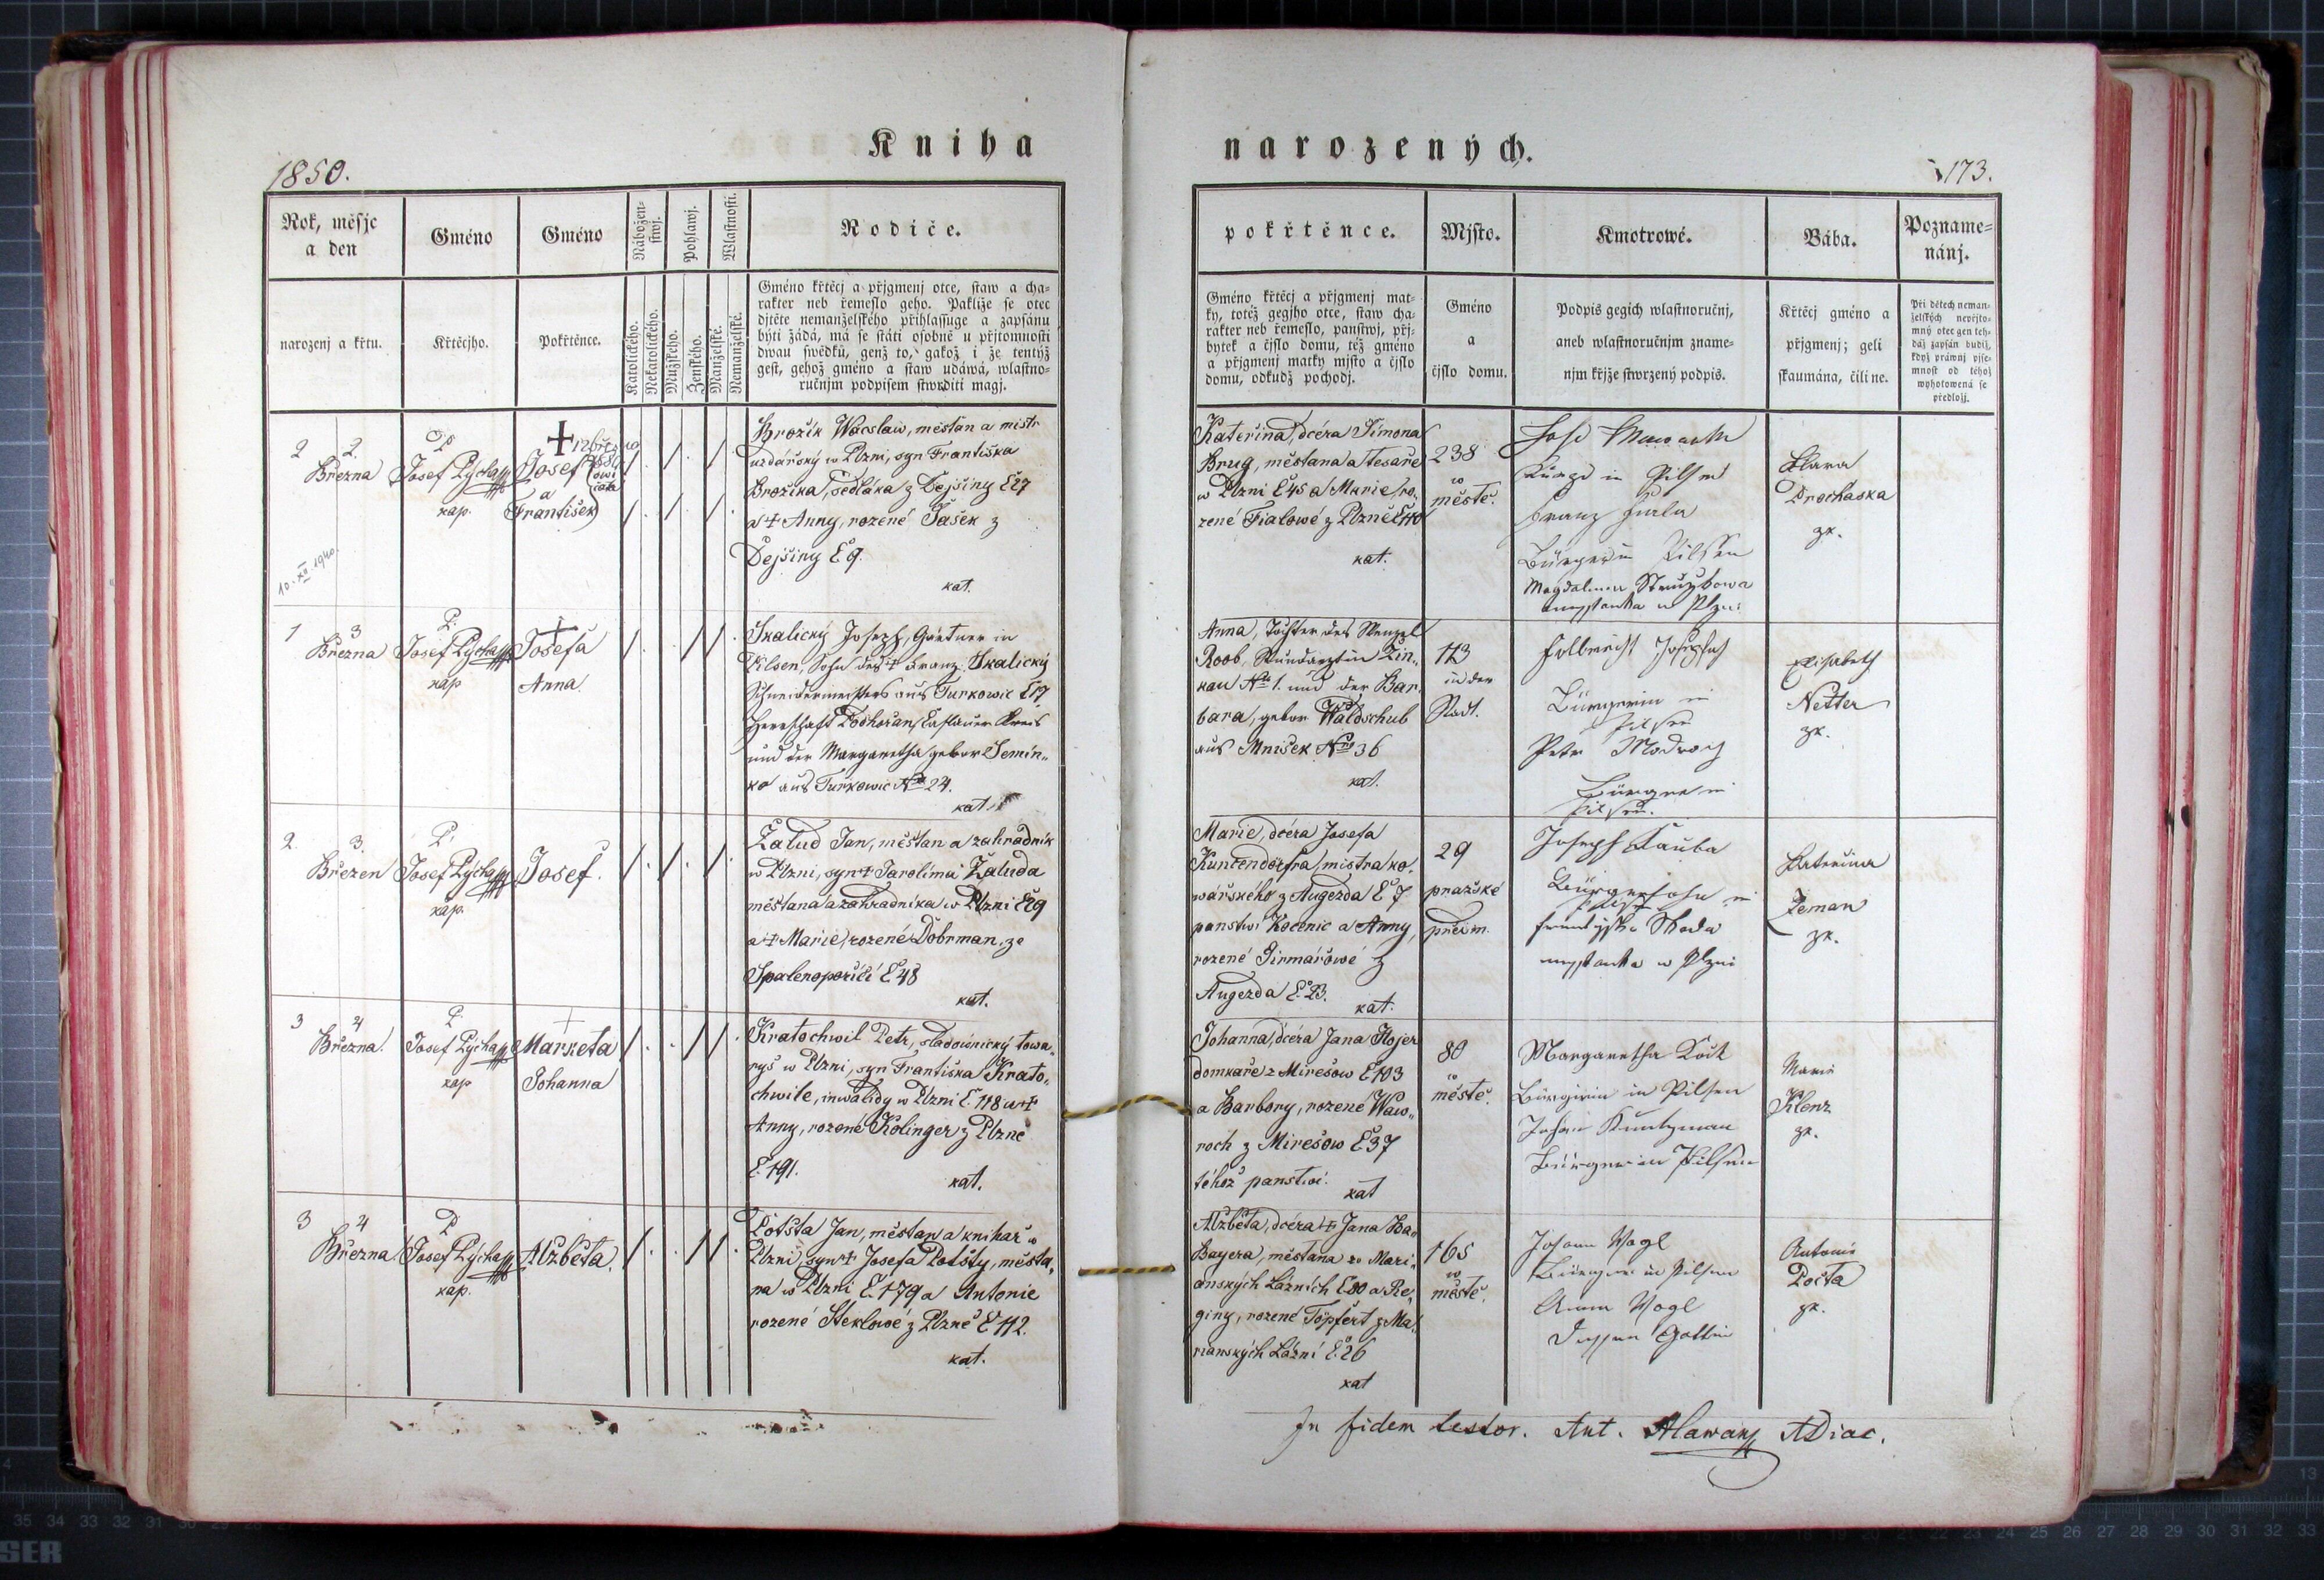 Kniha
narozených.
1850.
173.
Rok, měsjc
a den
Gméno
Gméno
Nábožen-
stwj.
Pohlawj.
Wlastnosti.
Rodiče.
narozenj a křtu.
Křtěcjho.
Pokřtěnce.
Katolického.
Nekatolického.
Mužského.
Ženského.
Manželské.
Nemanželské.
Gméno křtěcj a přjgmenj otce, staw a cha-
rakter neb řemeslo geho. Pakliže se otec
djtěte nemanželského přihlassuge a zapsánu
býti žádá, má se státi osobně u přjtomnosti
dwau swědků, genž to, gakož i že tentýž
gest, gehož gméno a staw udáwá, wlastno-
ručnjm podpisem stwrditi magj.
pokřtěnce.
Mjsto.
Kmotrowé.
Bába.
Pozname-
nánj.
Gméno křtěcj a přjgmenj mat-
ky, totéž gegjho otce, staw cha-
rakter neb řemeslo, panstwj, přj-
bytek a čjslo domu, též gméno
a přjgmenj matky mjsto a čjslo
domu, odkudž pochodj.
Gméno
a
čjslo domu.
Podpis gegich wlastnoručnj,
aneb wlastnoručnjm zname-
njm křjže stwrzený podpis.
Křtěcj gméno a
přjgmenj; geli
skaumána, čili ne.
Při dětech neman-
želských nepřjto-
mný otec gen teh-
dáž zapsán budiž,
když práwnj pjse-
mnost od téhož
wyhotowená se
předložj.
2 2.
Března
P
Josef Pýcha
kap.
Josef
a
František
10. XII. 1940.
Brožík Wácslaw, měšťan a mistr
uzdařský w Plzni, syn Františka
Brožíka, sedláka z Dejšiny Č 27
a + Anny, rozené Šašek z
Dejšiny Č 9.
kat.
Kateřina, dcéra Šimona
Brug, měšťana a tesaře
w Plzni Č 45 a Marie ro-
zené Fialowé z Plzně Č 110
kat.
238
w
městě.
Franz Fiala
Bürger in Pilsen
Magdalena
w Plzni
Klara
Prochaska
zk.
1 3
Března
P.
Josef Pýcha
kap
Josefa
Anna.
Skalický Joseph, Gärtner in
Pilsen, Sohn des + Franz Skalický
Schneidermeisters aus Turkowic Č 17
Herrschaft Časlauer Kreis
und der Margaretha gebor Semin-
ka aus Turkowic No 24.
kat.
Anna, Tochter des Wenzel
Roob, Wundarzt in Žin-
kau No 1. und der Bar-
bara, gebor Waldschub
aus Mnišek No 36
kat.
113
in der
Stadt.
Bürgerin in
Pilsen
Petr
Bürger in
Pilsen.
Elisabeth
Netter
zk.
2. 3.
Březen
P.
Josef Pýcha
kap.
Josef.
Žalud Jan, měšťan a zahradník
w Plzni, syn + Jarolíma Žaluda
měšťana a zahradníka w Plzni Č 29
a + Marie, rozené Dobrman, ze
Spalenopořičí Č 48
kat.
Marie, dcéra Josefa
Kuntendorfra, mistra ko-
wářského z Augezda Č 7
panstwí Kocenic a Anny,
rozené Girmářowé z
Augezda Č. 23.
kat.
29
pražské
předm.
Joseph Kauba
Bürgersohn in
Pilsen
w Plzni
Kateřina
Zeman
zk.
3 4
Března.
P.
Josef Pýcha
kap
Markéta
Johanna
Kratochwil Petr, sladownický towa-
ryš w Plzni, syn Františka Krato-
chwile, inwalidy w Plzni Č. 118 a +
Anny, rozené Kolinger z Plzně
Č. 191.
kat.
Johanna, dcéra Jana Hojer
domkaře z Mirešow Č 103
a Barbory, rozené Waw-
roch z Mirešow Č 37
téhož panstwí.
kat
80
w
městě.
Margaretha
Bürgerin in Pilsen
Johann Kuntzman
Bürger in Pilsen
Marie
Klenz
zk.
3 4
Března
P
Josef Pýcha
kap.
Alžběta.
Potšta Jan, měšťan a knihař w
Plzni, syn + Josefa Potšty, měšťa-
na w Plzni Č. 179 a Antonie
rozené Steklowé z Plzně Č 112.
kat.
Alžběta, dcéra + Jana Ha-
Bayera, měšťana w Mari-
anských Lázních Č 80 a Re-
giny, rozené Töpfert z Ma-
rianských Lázní Č. 26
kat
165
w
městě.
Johann Vogl
Bürger in Pilsen
Anna Vogl
Dessen Gattin
Antonie
Počta
zk.
In fidem testor. Ant. Hlawan ADiac.